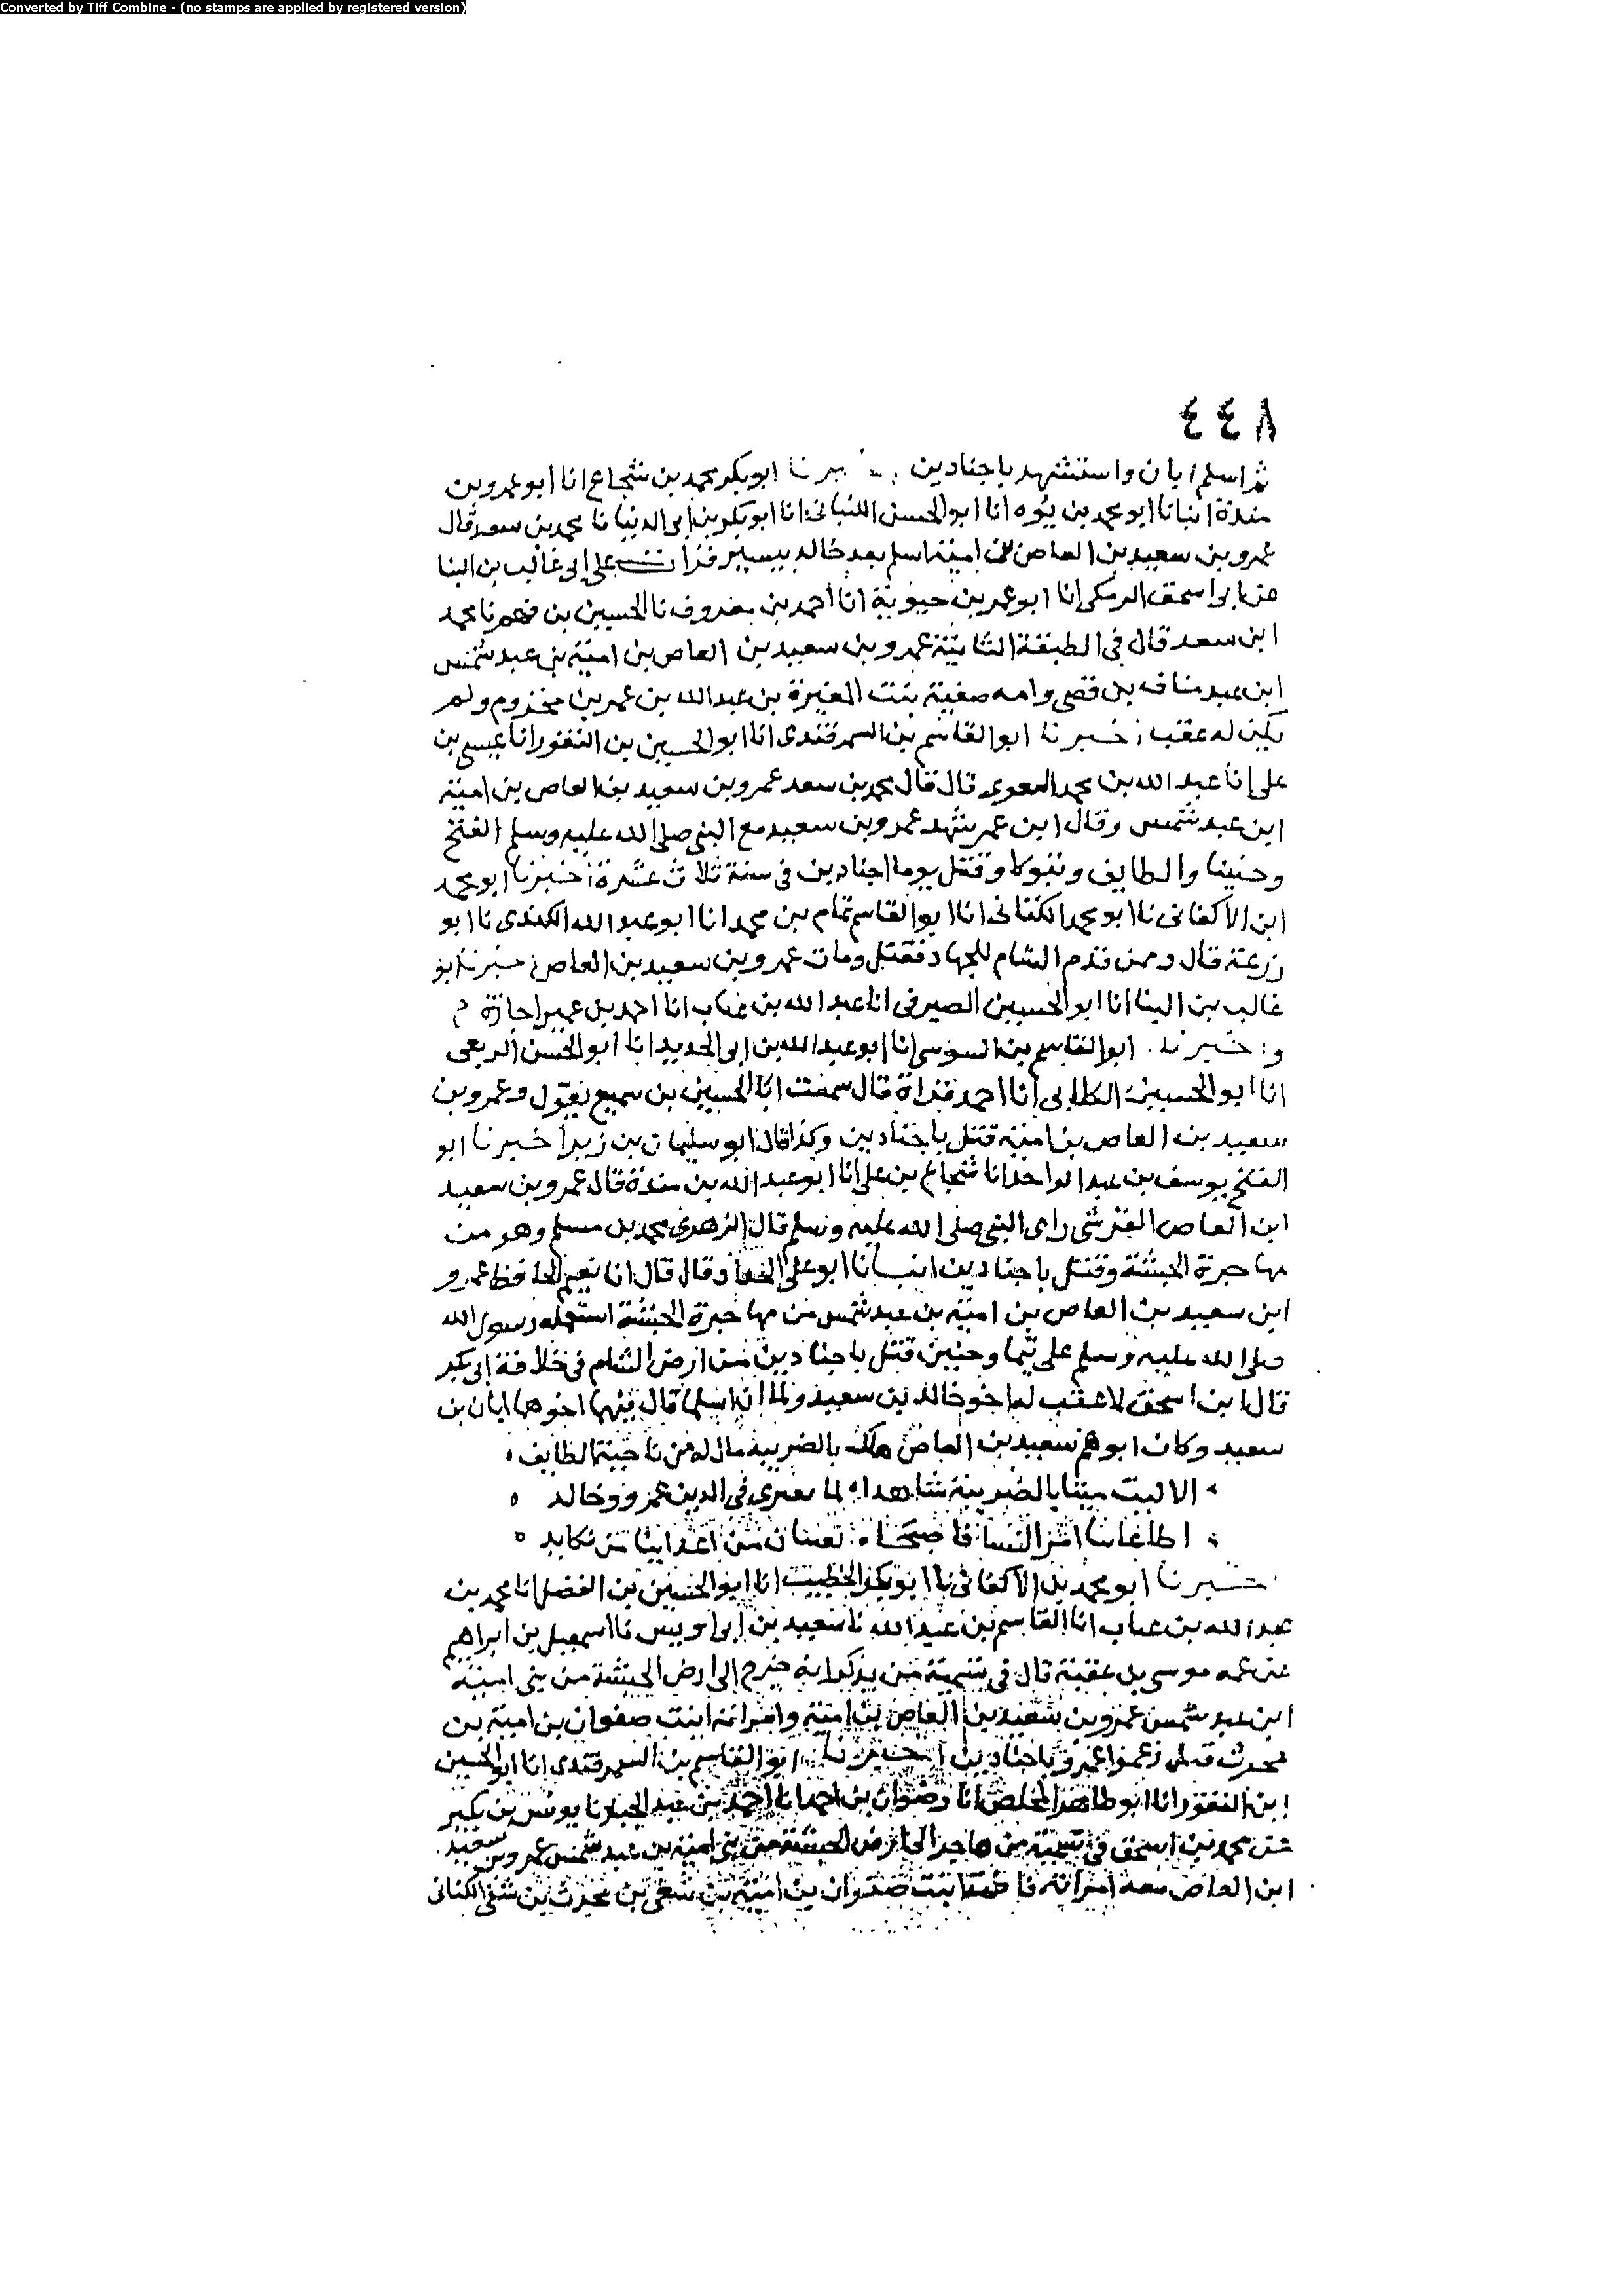 Converted by Tiff Combine - (no stamps are applied by registered version)
٤٤٨
ثم اسلم ابان واستشهد باجنادين ابو بكر محمد بن شجاع انا ابو عمرو بن
مندة انبانا ابو محمد بن يوه انا ابو الحسن اللنباني انا ابو بكر بن ابى الدنيا نا محمد بن سعد قال
عمرو بن سعيد بن العاص بن امية اسلم بعد خالد بيسير قرات على ابى غالب بن البنا
عن ابى اسحق البرمكى انا ابو عمر بن حيوية انا احمد بن معروف نا الحسين بن فهم نا محمد
ابن سعد قال فى الطبقة الثانية عمرو بن سعيد بن العاص بن امية بن عبد شمس
ابن عبد مناف بن قصى وامه صفية بنت المغيرة بن عبد الله بن عمر بن مخزوم ولم
يكن له عقب اخبرنا ابو القاسم بن السمرقندى انا ابو الحسين بن النقور انا عيسى بن
على انا عبد الله بن محمد البغوى قال قال محمد بن سعد عمرو بن سعيد بن العاص بن امية
ابن عبد شمس وقال ابن عمر شهد عمرو بن سعيد مع النبى صلى الله عليه وسلم الفتح
وحنينا والطايف وتبوكا وقتل يوم اجنادين فى سنة ثلاث عشرة اخبرنا ابو محمد
ابن الاكفانى نا ابو محمد الكتانى انا ابو القاسم تمام بن محمد انا ابو عبد الله الكندى نا ابو
زرعة قال وممن قدم الشام للجهاد فقتل ومات عمرو بن سعيد بن العاص اخبرنا ابو
غالب بن البنا انا ابو الحسين الصيرفى انا عبد الله بن عتاب انا احمد بن عمير اجازة م
واخبرنا ابو القاسم بن السوسى انا ابو عبد الله بن ابى الحديد انا ابو الحسن الربعى
انا ابو الحسين الكلابى انا احمد قراة قال سمعت ابا الحسين بن سميع يقول وعمرو بن
سعيد بن العاص بن امية قتل باجنادين وكذا قال ابو سليمان بن زبر اخبرنا ابو
الفتح يوسف بن عبد الواحد انا شجاع بن على انا ابو عبد الله بن مندة قال عمرو بن سعيد
ابن العاص القرشى راى النبى صلى الله عليه وسلم قال الزهرى محمد بن مسلم وهو من
مهاجرة الحبشة وقتل باجنادين انبانا ابو على الحداد قال قال انا نعيم الحافظ عمرو
ابن سعيد بن العاص بن امية بن عبد شمس من مهاجرة الحبشة استعمله رسول الله
صلى الله عليه وسلم على تيما وحنين قتل باجنادين من ارض الشام فى خلافة ابى بكر
قال ابن اسحق لا عقب له اخو خالد بن سعيد ولما ان اسلما قال فيهما اخوهما ابان بن
سعيد وكان ابوهم سعيد بن العاص هلك بالضريبة مال له من ناحية الطايف
الا ليت ميتا بالضريبة شاهدا لما يفترى فى الدين عمرو وخالد
اطاعا امر النسا فاصبحا يعينان من اعداينا من نكايد
اخبرنا ابو محمد بن الاكفانى نا ابو بكر الخطيب انا ابو الحسين بن الفضل انا محمد بن
عبد الله بن عتاب انا القاسم بن عبد الله نا سعيد بن ابى اويس نا اسمعيل بن ابراهيم
عن عمه موسى بن عقبة قال فى تسمية من يذكر انه خرج الى ارض الحبشة من بنى امية
ابن عبد شمس عمرو بن سعيد بن العاص بن امية وامراته ابنت صفوان بن امية بن
محرث قتل زعموا عمرو باجنادين اخبرنا ابو القاسم بن السمرقندى انا ابو الحسين
ابن النقور انا ابو طاهر المخلص انا رضوان بن احمد انا احمد بن عبد الجبار نا يونس بن بكير
عن محمد بن اسحق فى تسمية من هاجر الى ارض الحبشة من بنى امية بن عبد شمس عمرو بن سعيد
ابن العاص معه امراته فاطمة بنت صفوان بن امية بن شقى بن محرث بن شقى الكنانى